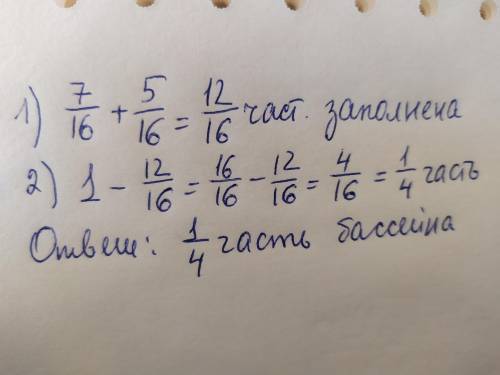 1) 7/16 + 5/16 = 12/16 част. заполнена
2) 1 - 12/16 = 16/16 - 12/16 = 4/16 = 1/4 часть
Ответ: 1/4 часть бассейна